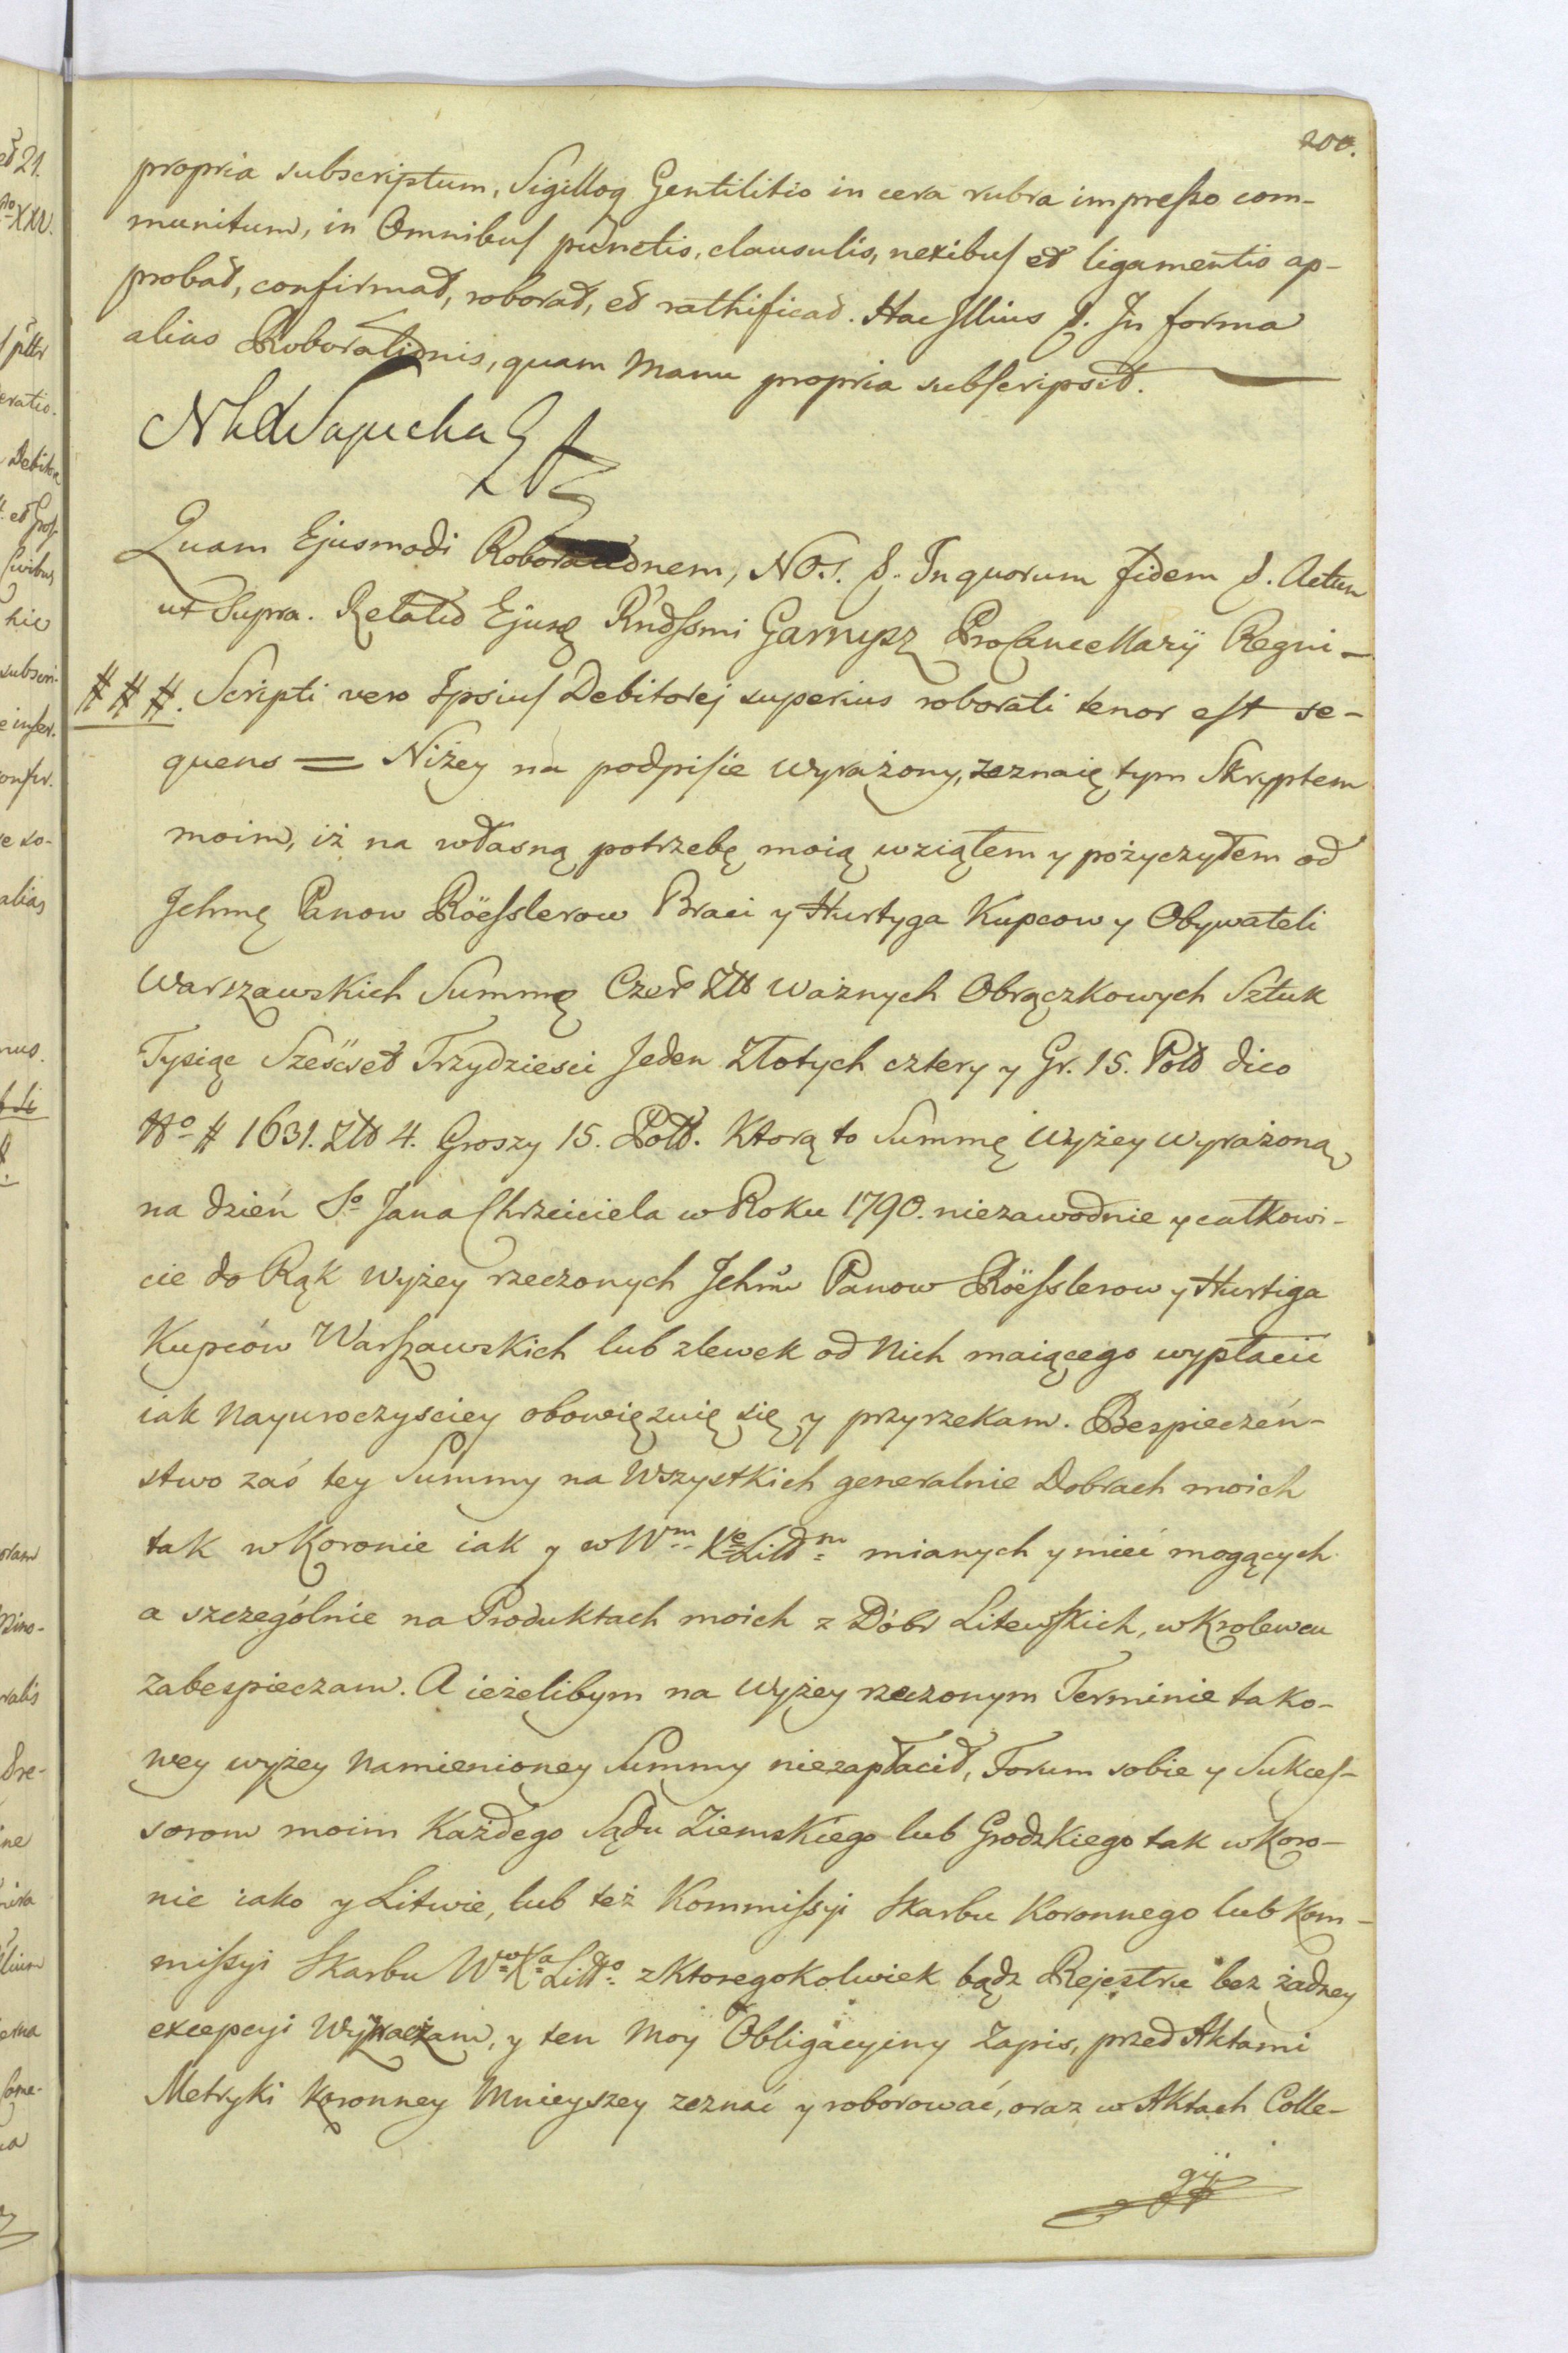 200.
propria subscriptum, Sigilloq Gentilitio in cera rubra impresso com-
munitum, in Omnibus punctis, clausulis, nexibus et ligamentis ap-
probat, confirmat, roborat, et rathificat. Hac Illius &. In forma
alias Roborationis, quam Manu propria subscripsit.
Sapieha
Quam Ejusmodi Roborationem, NOS. &. In quorum fidem &. Actum
ut Supra. Relatio Ejusq Rndssmi Garnysz ProCancellarÿ Regni –
###. Scripti vero Ipsius Debitorej superius roborati tenor est se-
quens = Niżey na podpisie wyrażony, zeznaię tym Skryptem
moim, iż na własną potrzebę moią wziąłem y pożyczyłem od
Jchmę Panow Röesslerow Braci y Hurtyga Kupcow y Obywateli
Warszawskich Summę Czer Złł ważnych Obrączkowych Sztuk
Tysiąc Sześćset Trzydziesci Jeden Złotych cztery y Gr. 15. Pol dico
No # 1631. Złł 4. Groszy 15. Poll. Ktorą to Summę wyżey wyrażoną,
na dzień So Jana Chrzciciela w Roku 1790. niezawodnie y całkowi-
cie do Rąk wyżey rzeczonych Jchmw Panow Röesslerow y Hurtiga
Kupców Warszawskich lub zlewek od Nich maiącego wypłacić
iak Nayuroczysciey obowięzuię się y przyrzekam. Bespieczeń-
stwo zaś tey Summy na Wszystkich generalnie Dobrach moich
tak w Koronie iak y w Wm Xe Littm mianych y mieć mogących
a szczególnie na Produktach moich z Dóbr Litewskich, w Krolewcu
zabespieczam. A ieżelibym na wyżey rzeczonym Terminie tako-
wey wyżey Namienioney Summy niezapłacił, Forum sobie y Sukces-
sorom moim Każdego Sądu Ziemskiego lub Grodzkiego tak w Koro-
nie iako y Litwie, lub też Kommissyi Skarbu Koronnego lub Kom-
missyi Skarbu Wo Xa Litto z Ktoregokolwiek bądz Rejestru bez żadney
excepcyi Wyznaczam, y ten Moy Obligacyiny Zapis, przed Aktami
Metryki Koronney Mnieyszey zeznać y roborować, oraz w Aktach Colle-
gÿ